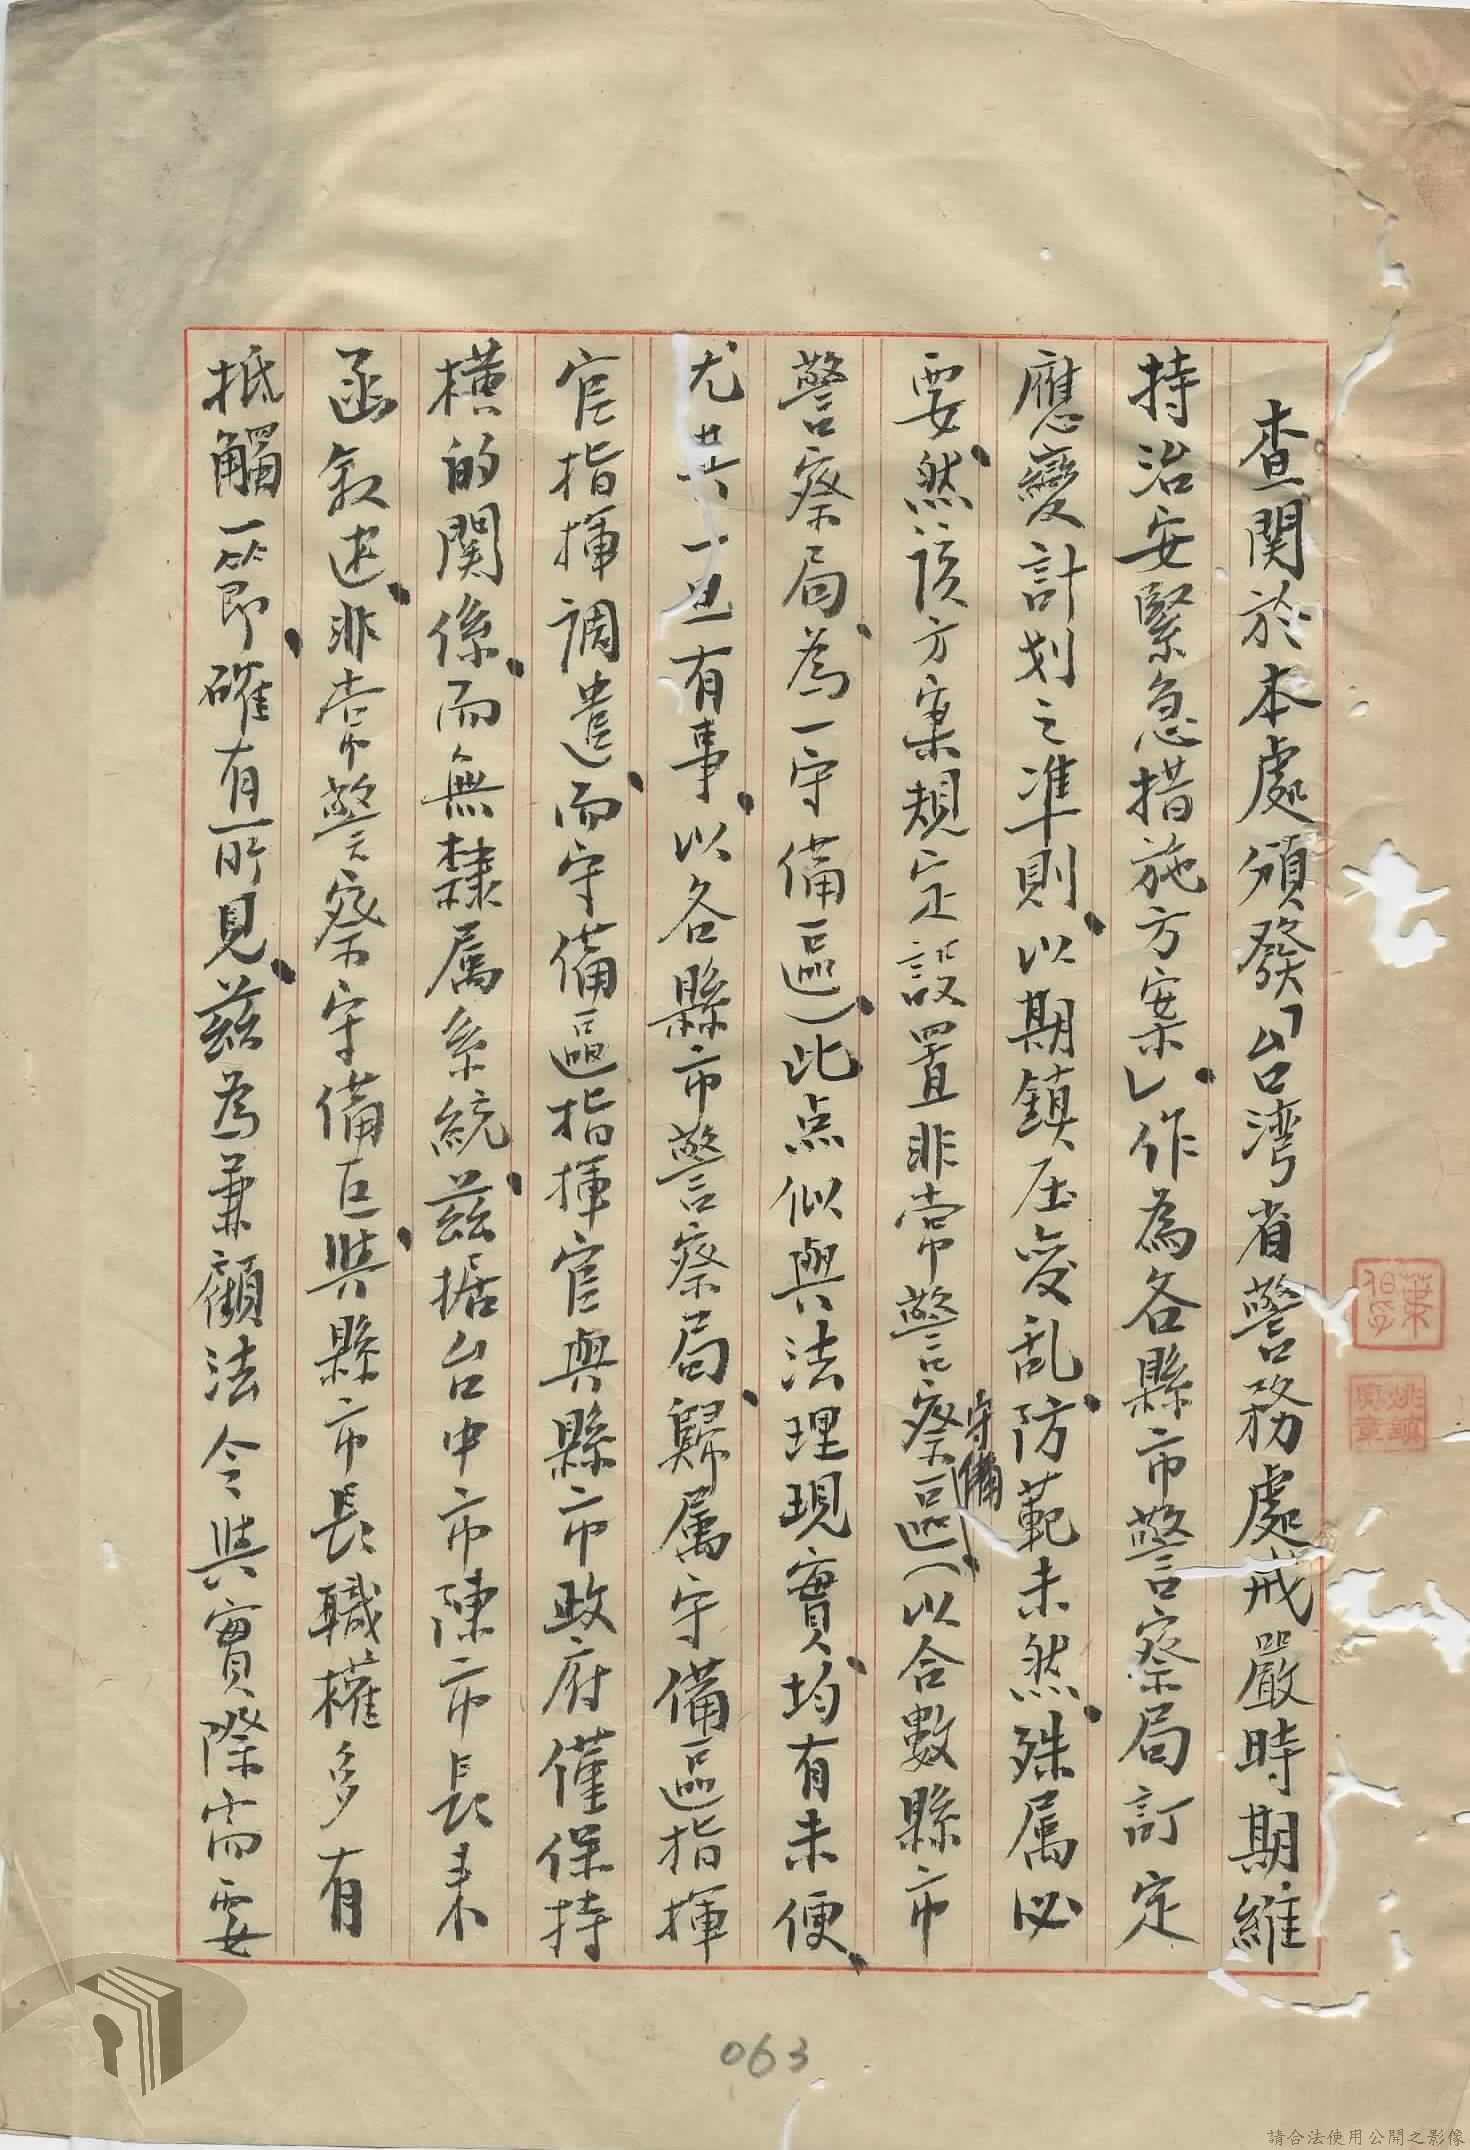 查関於本處頒發「台湾省警務處戒嚴時期維
持治安緊急措施方案」作為各縣市警察局訂定
應變計划之準則、以期鎮压变乱、防範未然、殊属必
要、然该方案規定設置非常警察守備區(以合數縣市
警察局、為一守備區)、此点似與法理現實、均有未便、
尤其一旦有事、以各縣市警察局、歸属守備區指揮
官指揮調遣、而守備區指揮官與縣市政府僅保持
橫的関係、而無隸属系統、兹据台中市陳市長来
函敘述、非常警察守備区、與縣市長職權多有
抵觸一節、確有所見、兹為兼顧法令與實際需要
063
請合法使用公開之影像